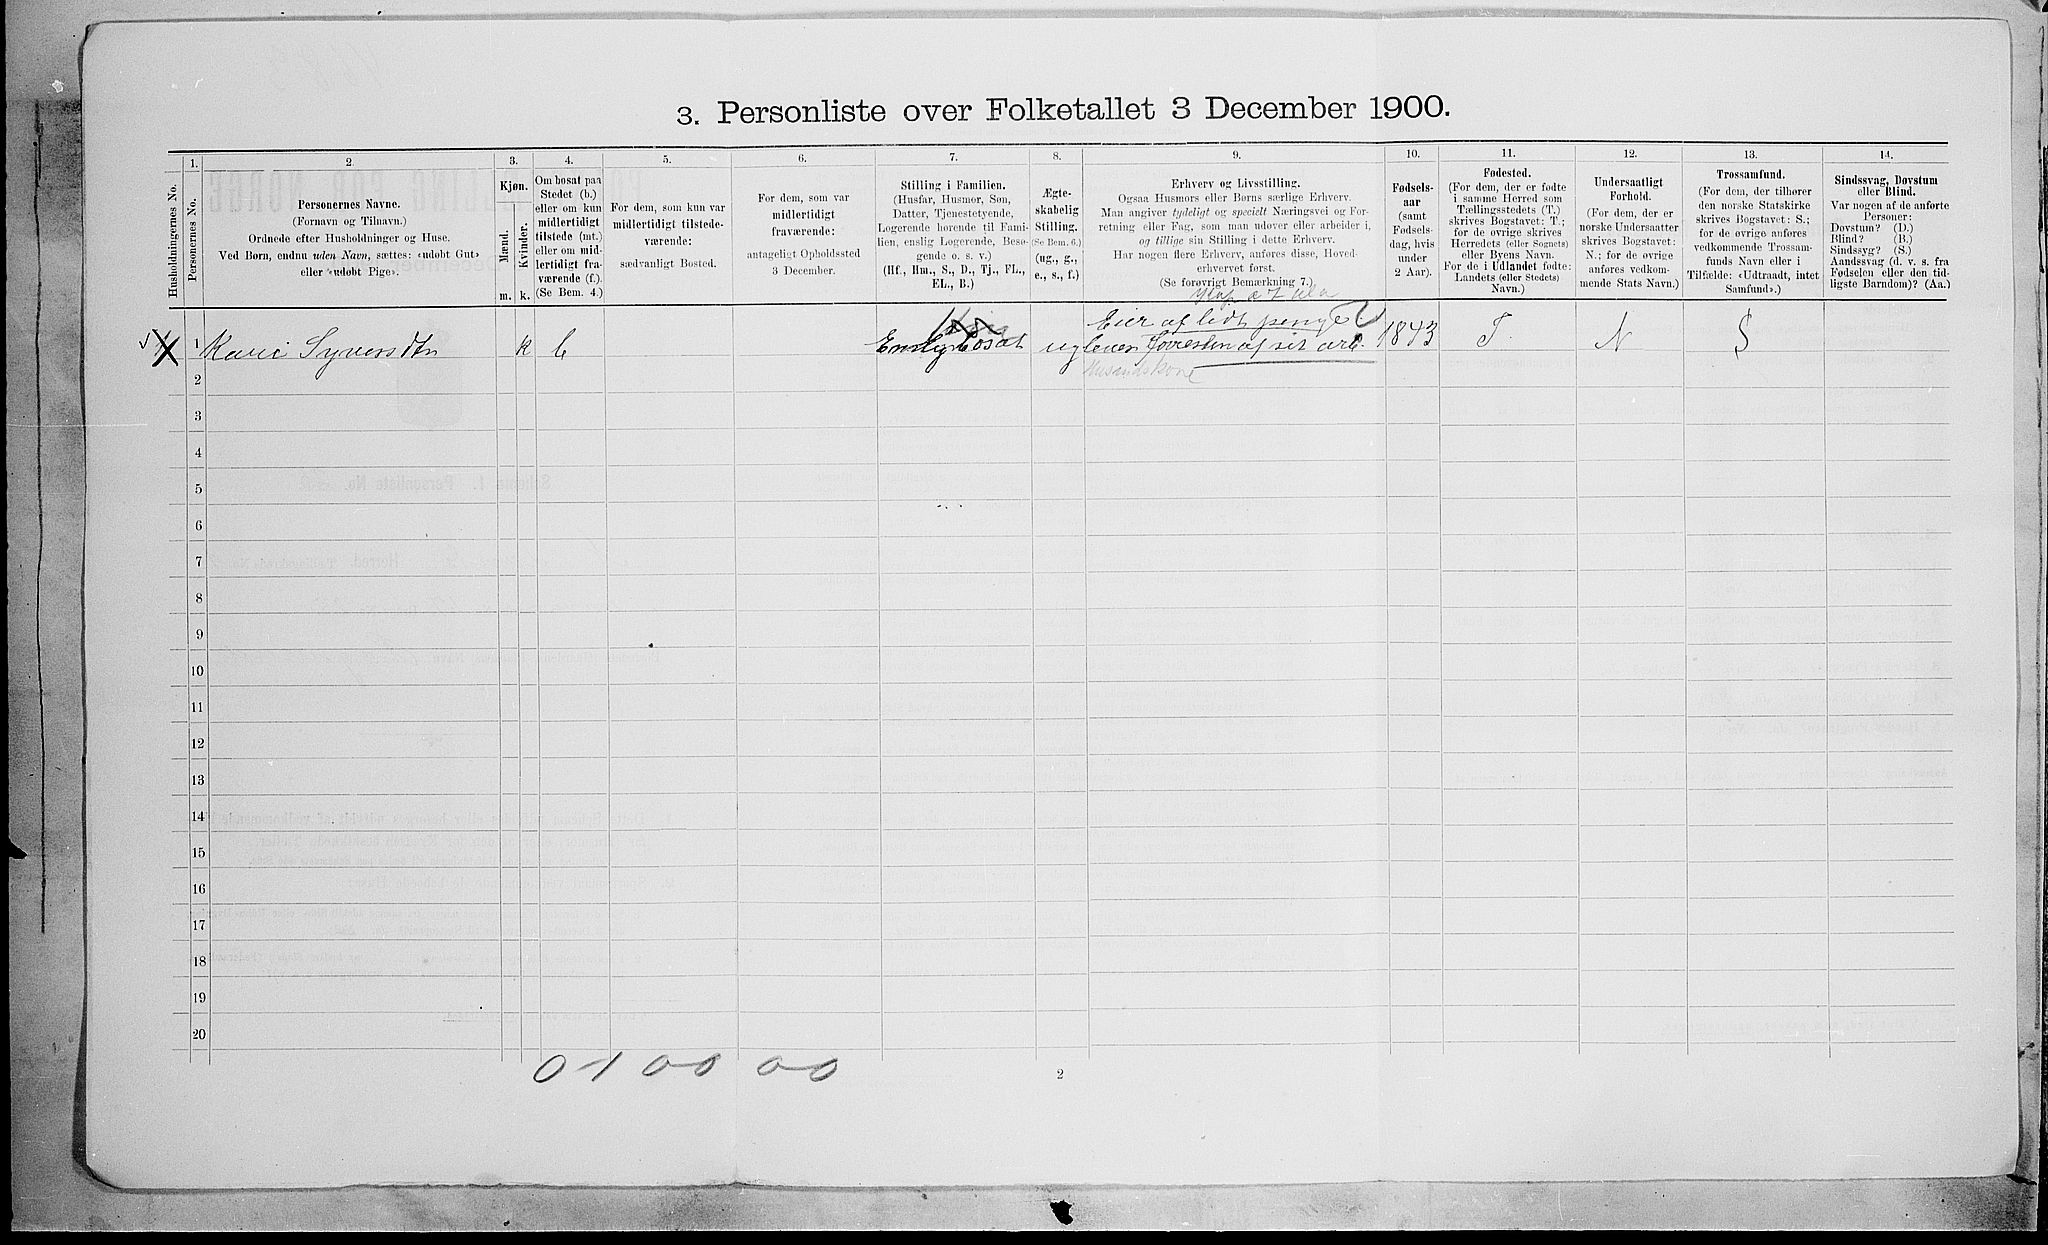 3. Personliste over Folketallet 3 December 1900.
1. 2. 3. 4. 5. 6. 7. 8. 9. 10. 11. 12. 13. 14.
Husholdningernes No.
Personernes No.
Personernes Navne.
(Fornavn og Tilnavn.)
Ordnede efter Husholdninger og Huse.
Ved Børn, endnu uden Navn, sættes: «udøbt Gut»
eller «udøbt Pige».
Kjøn.
Mænd.
Kvinder.
m. k.
Om bosat paa
Stedet (b.)
eller om kun
midlertidigt
tilstede (mt.)
eller om mid-
lertidigt fra-
værende (f.)
(Se Bem. 4.)
For dem, som kun var
midlertidigt tilstede-
værende:
sædvanligt Bosted.
For dem, som var
midlertidigt
fraværende:
antageligt Opholdssted
3 December.
Stilling i Familien.
(Husfar, Husmor, Søn,
Datter, Tjenestetyende,
Logerende hørende til Fami-
lien, enslig Logerende, Besø-
gende o. s. v.)
(Hf., Hm., S., D., Tj., FL.,
EL., B.)
Ægte-
skabelig
Stilling.
(Se Bem. 6.)
(ug., g.,
e., s., f.)
Erhverv og Livsstilling.
Ogsaa Husmors eller Børns særlige Erhverv.
Man angiver tydeligt og specielt Næringsvei og For-
retning eller Fag, som man udøver eller arbeider i,
og tillige sin Stilling i dette Erhverv.
Har nogen flere Erhverv, anføres disse, Hoved-
erhvervet først.
(Se forøvrigt Bemærkning 7.)
Fødsels-
aar
(samt
Fødsels-
dag, hvis
under
2 Aar).
Fødested.
(For dem, der er fødte
i samme Herred som
Tællingsstedets (T.)
skrives Bogstavet: T.;
for de øvrige skrives
Herredets (eller Sognets)
eller Byens Navn.
For de i Udlandet fødte:
Landets (eller Stedets)
Navn.)
Undersaatligt
Forhold.
(For dem, der er
norske Undersaatter
skrives Bogstavet:
N.; for de øvrige
anføres vedkom-
mende Stats Navn.)
Trossamfund.
(For dem, der tilhører
den norske Statskirke
skrives Bogstavet: S.;
for de øvrige anføres
vedkommende Trossam-
funds Navn eller i
Tilfælde: «Udtraadt, intet
Samfund».)
Sindssvag, Døvstum
eller Blind.
Var nogen af de anførte
Personer:
Døvstum? (D.)
Blind? (B.)
Sindssyg? (S.)
Aandssvag (d. v. s. fra
Fødselen eller den tid-
ligste Barndom)? (Aa.)
Eier af lidt penge
1 Kari Syversdtr k b Enslig bosat ug lever forresten af sit arb. 1843 T N S
2
3
4
5
6
7
8
9
10
11
12
13
14
15
16
17
18
19
20
0 1 00 00
2